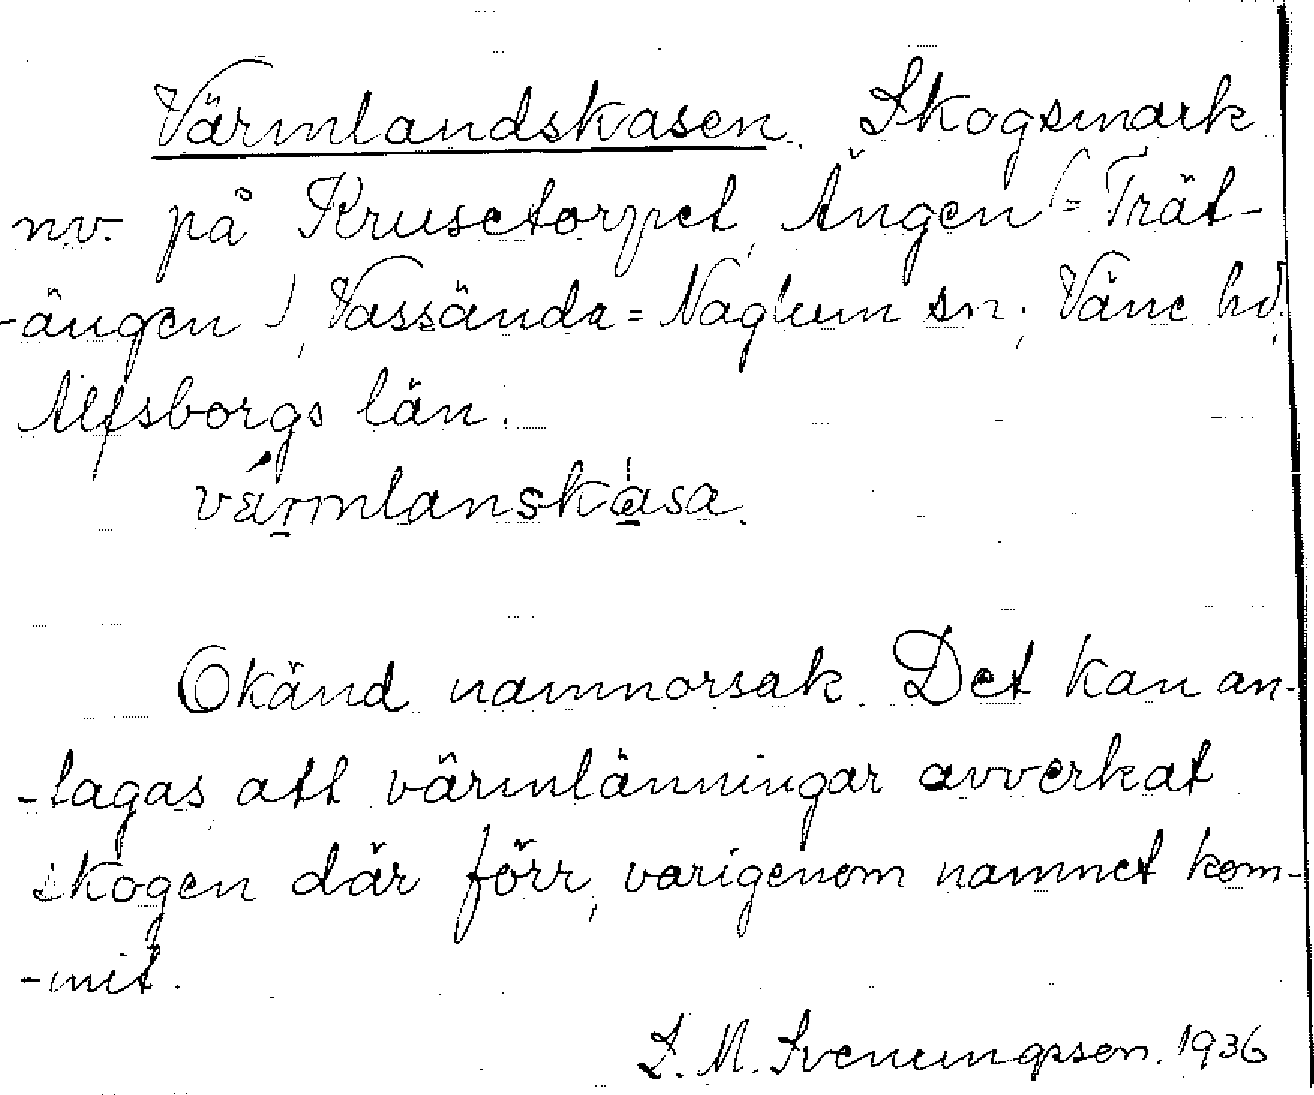 Värmlandskasen. Skogsmark
nv. på Krusetorpet, Ängen (= Trät-
-ängen), Vassända = Naglum sn; Väne hd,
Älfsborgs län.
värmlanskasa.
Okänd namnorsak. Det kan an-
-tagas att värmlänningar avverkat
skogen där förr, varigenom namnet kom-
-mit.
L. M. Svenungsson. 1936